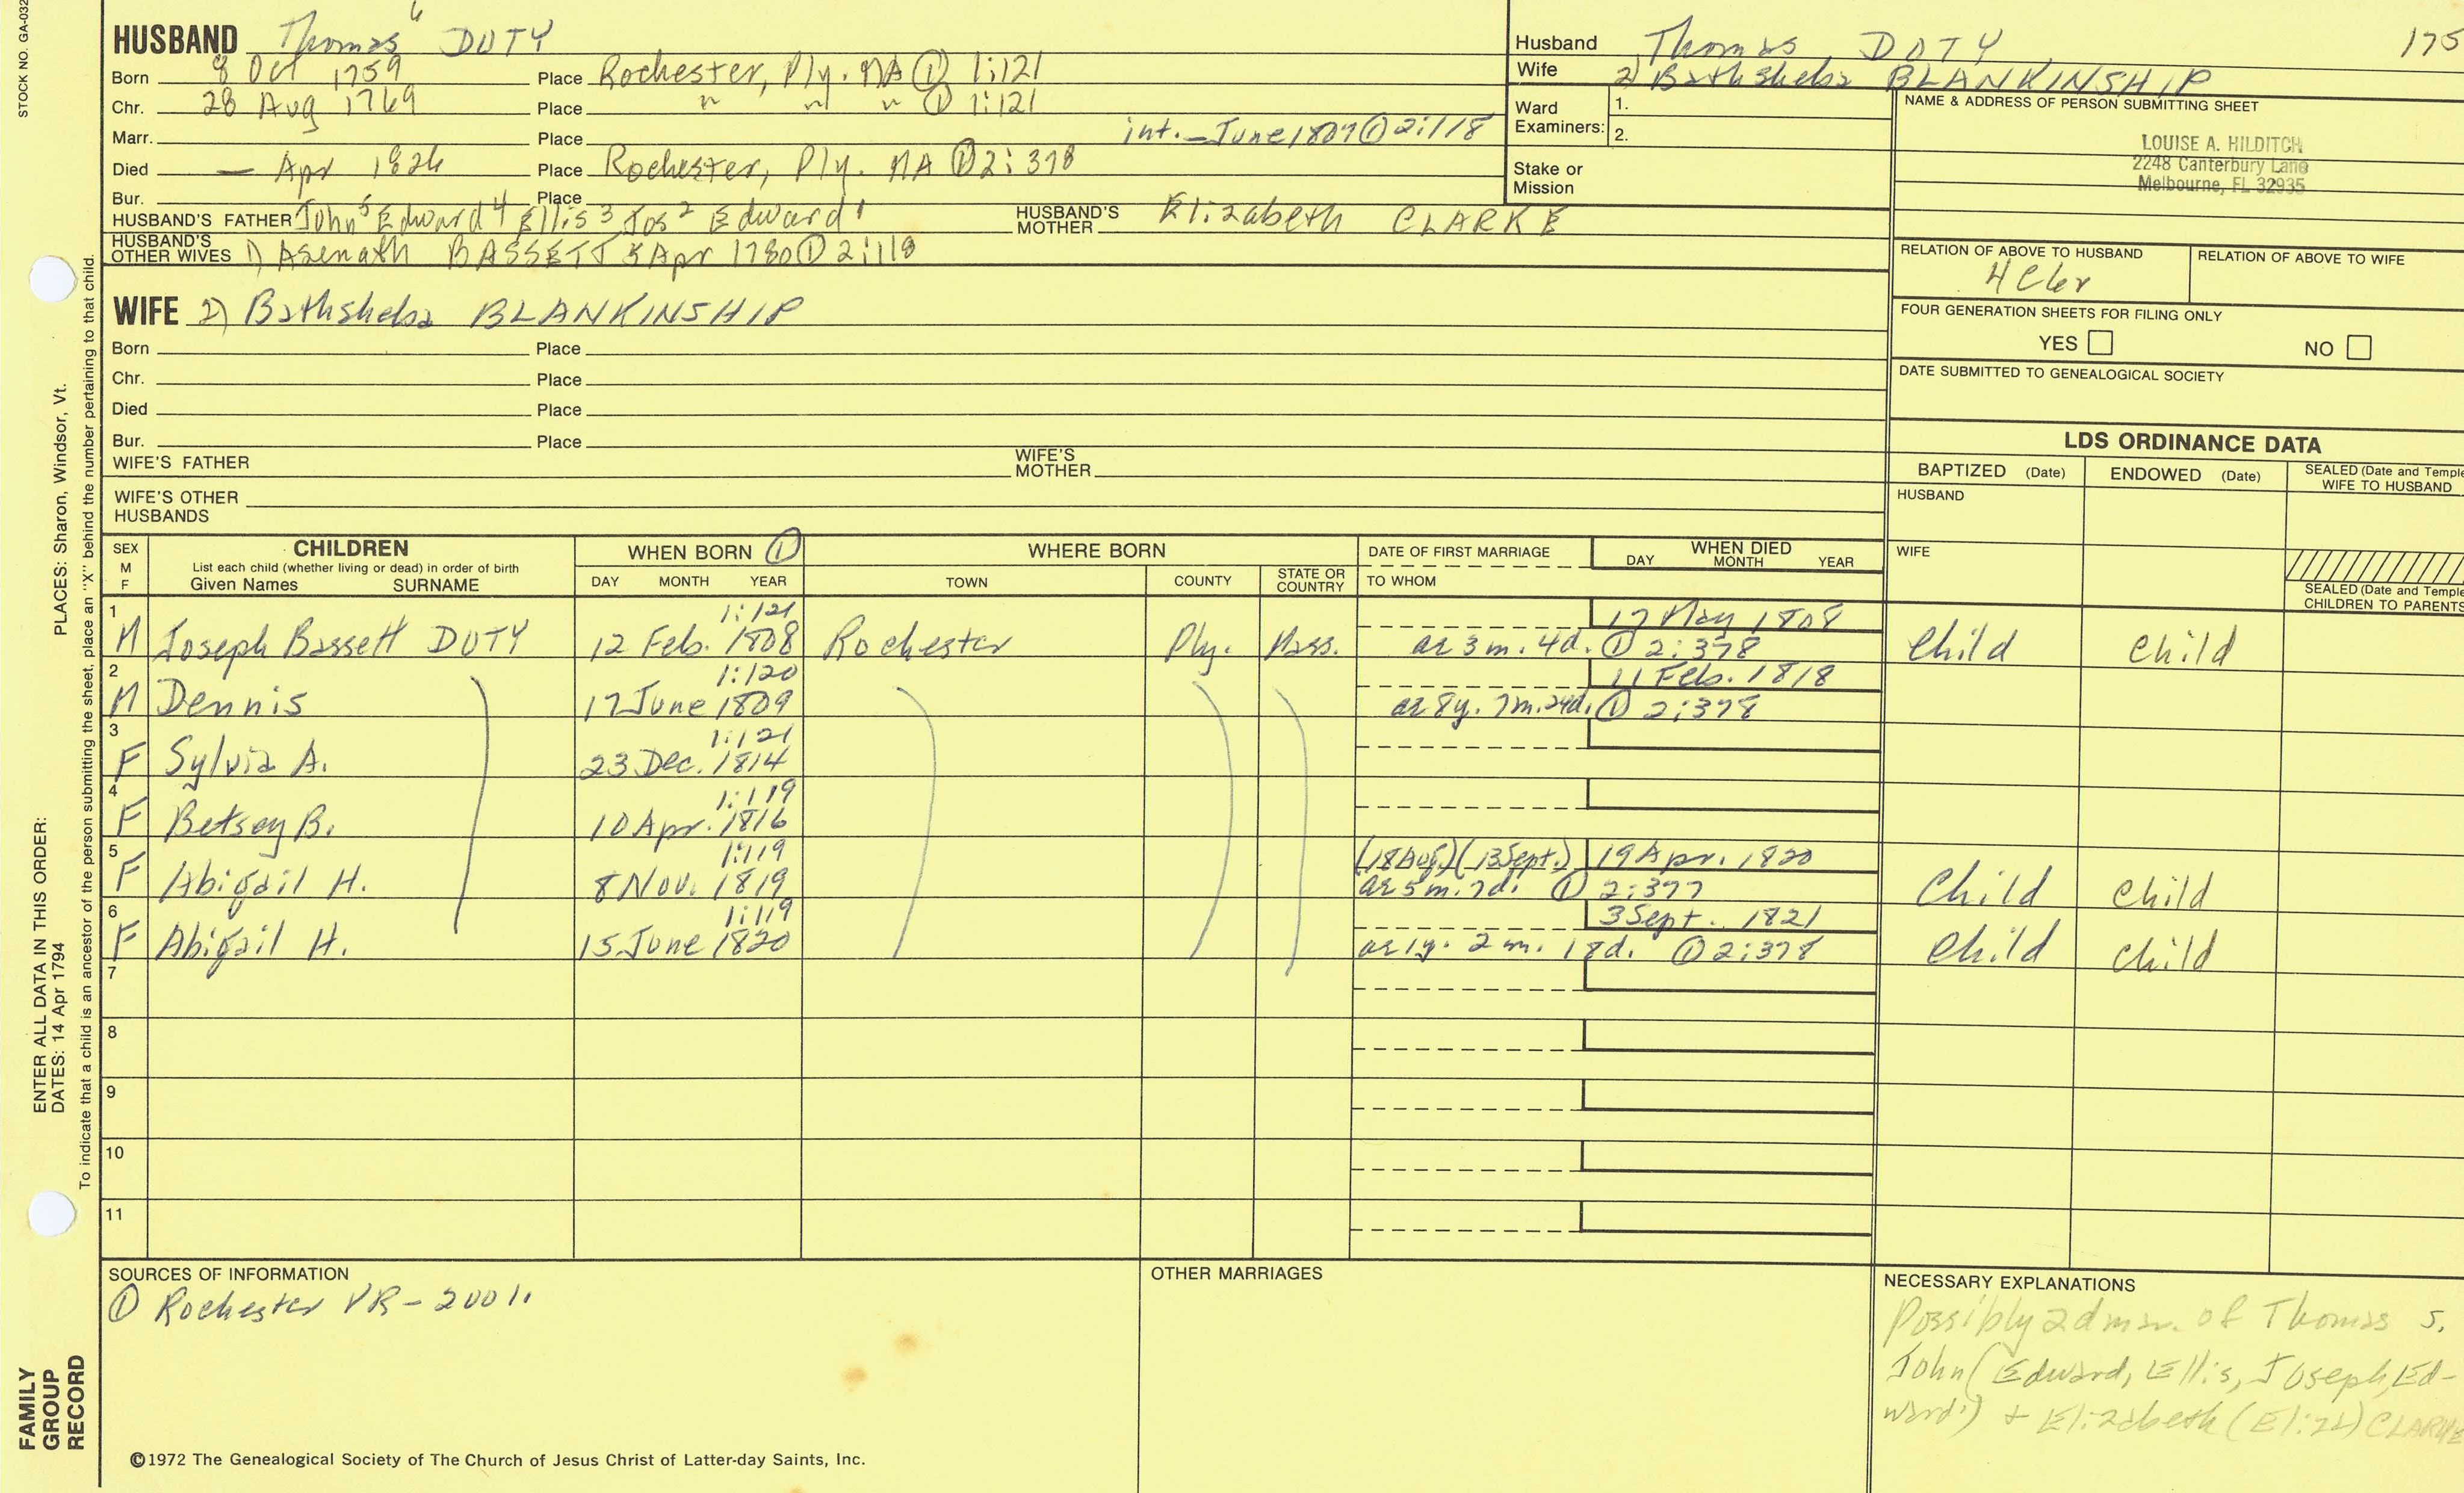 STOCK NO. GA-032
HUSBAND Thomas 6 DOTY
Born 8 Oct 1759 Place Rochester, Ply. MA ① 1:121
Chr. 28 Aug 1769 Place " " " ① 1:121
Marr. Place int. — June 1807 ① 2:118
Died — Apr 1826 Place Rochester, Ply. MA ① 2:378
Bur. Place
HUSBAND'S FATHER John 5 Edward 4 Ellis 3 Jos 2 Edward 1 HUSBAND'S MOTHER Elizabeth CLARKE
HUSBAND'S OTHER WIVES 1) Asenath BASSETT 5 Apr 1780 ① 2:118
WIFE 2) Bathsheba BLANKINSHIP
Born Place
Chr. Place
Died Place
Bur. Place
WIFE'S FATHER WIFE'S MOTHER
WIFE'S OTHER HUSBANDS
Husband Thomas DOTY 175
Wife 2) Bathsheba BLANKINSHIP
Ward Examiners: 1.
2.
Stake or Mission
NAME & ADDRESS OF PERSON SUBMITTING SHEET
LOUISE A. HILDITCH
2248 Canterbury Lane
Melbourne, FL 32935
RELATION OF ABOVE TO HUSBAND RELATION OF ABOVE TO WIFE
FOUR GENERATION SHEETS FOR FILING ONLY
YES NO
DATE SUBMITTED TO GENEALOGICAL SOCIETY
LDS ORDINANCE DATA
BAPTIZED (Date) ENDOWED (Date) SEALED (Date and Temple
WIFE TO HUSBAND
HUSBAND
WIFE
SEALED (Date and Temple
CHILDREN TO PARENTS
SEX M F CHILDREN WHEN BORN ① WHERE BORN DATE OF FIRST MARRIAGE WHEN DIED
List each child (whether living or dead) in order of birth
Given Names SURNAME DAY MONTH YEAR TOWN COUNTY STATE OR COUNTRY TO WHOM DAY MONTH YEAR
1 1:121 17 May 1808
M Joseph Bassett DOTY 12 Feb. 1808 Rochester Ply. Mass. ae 3 m. 4d. ① 2:378 Child Child
2 1:120 11 Feb. 1818
M Dennis 17 June 1809 ae 8y. 7m. 24d. ① 2:378
3 1:121
F Sylvia A. 23 Dec. 1814
4 1:119
F Betsey B. 10 Apr. 1816
5 1:119 (18 Aug.) (13 Sept.) 19 Apr. 1820
F Abigail H. 8 Nov. 1819 ae 5 m. 7d. ① 2:377 Child Child
6 1:119 3 Sept. 1821
F Abigail H. 15 June 1820 ae 1y. 2 m. 18d. ① 2:378 Child Child
7
8
9
10
11
SOURCES OF INFORMATION
① Rochester VR - 2001.
OTHER MARRIAGES
NECESSARY EXPLANATIONS
Possibly of Thomas s.
John (Edward, Ellis, Joseph, Ed-
ward.) + Elizabeth (Eliza) CLARKE
©1972 The Genealogical Society of The Church of Jesus Christ of Latter-day Saints, Inc.
FAMILY GROUP RECORD
ENTER ALL DATA IN THIS ORDER:
DATES: 14 Apr 1794
PLACES: Sharon, Windsor, Vt.
To indicate that a child is an ancestor of the person submitting the sheet, place an "X" behind the number pertaining to that child.